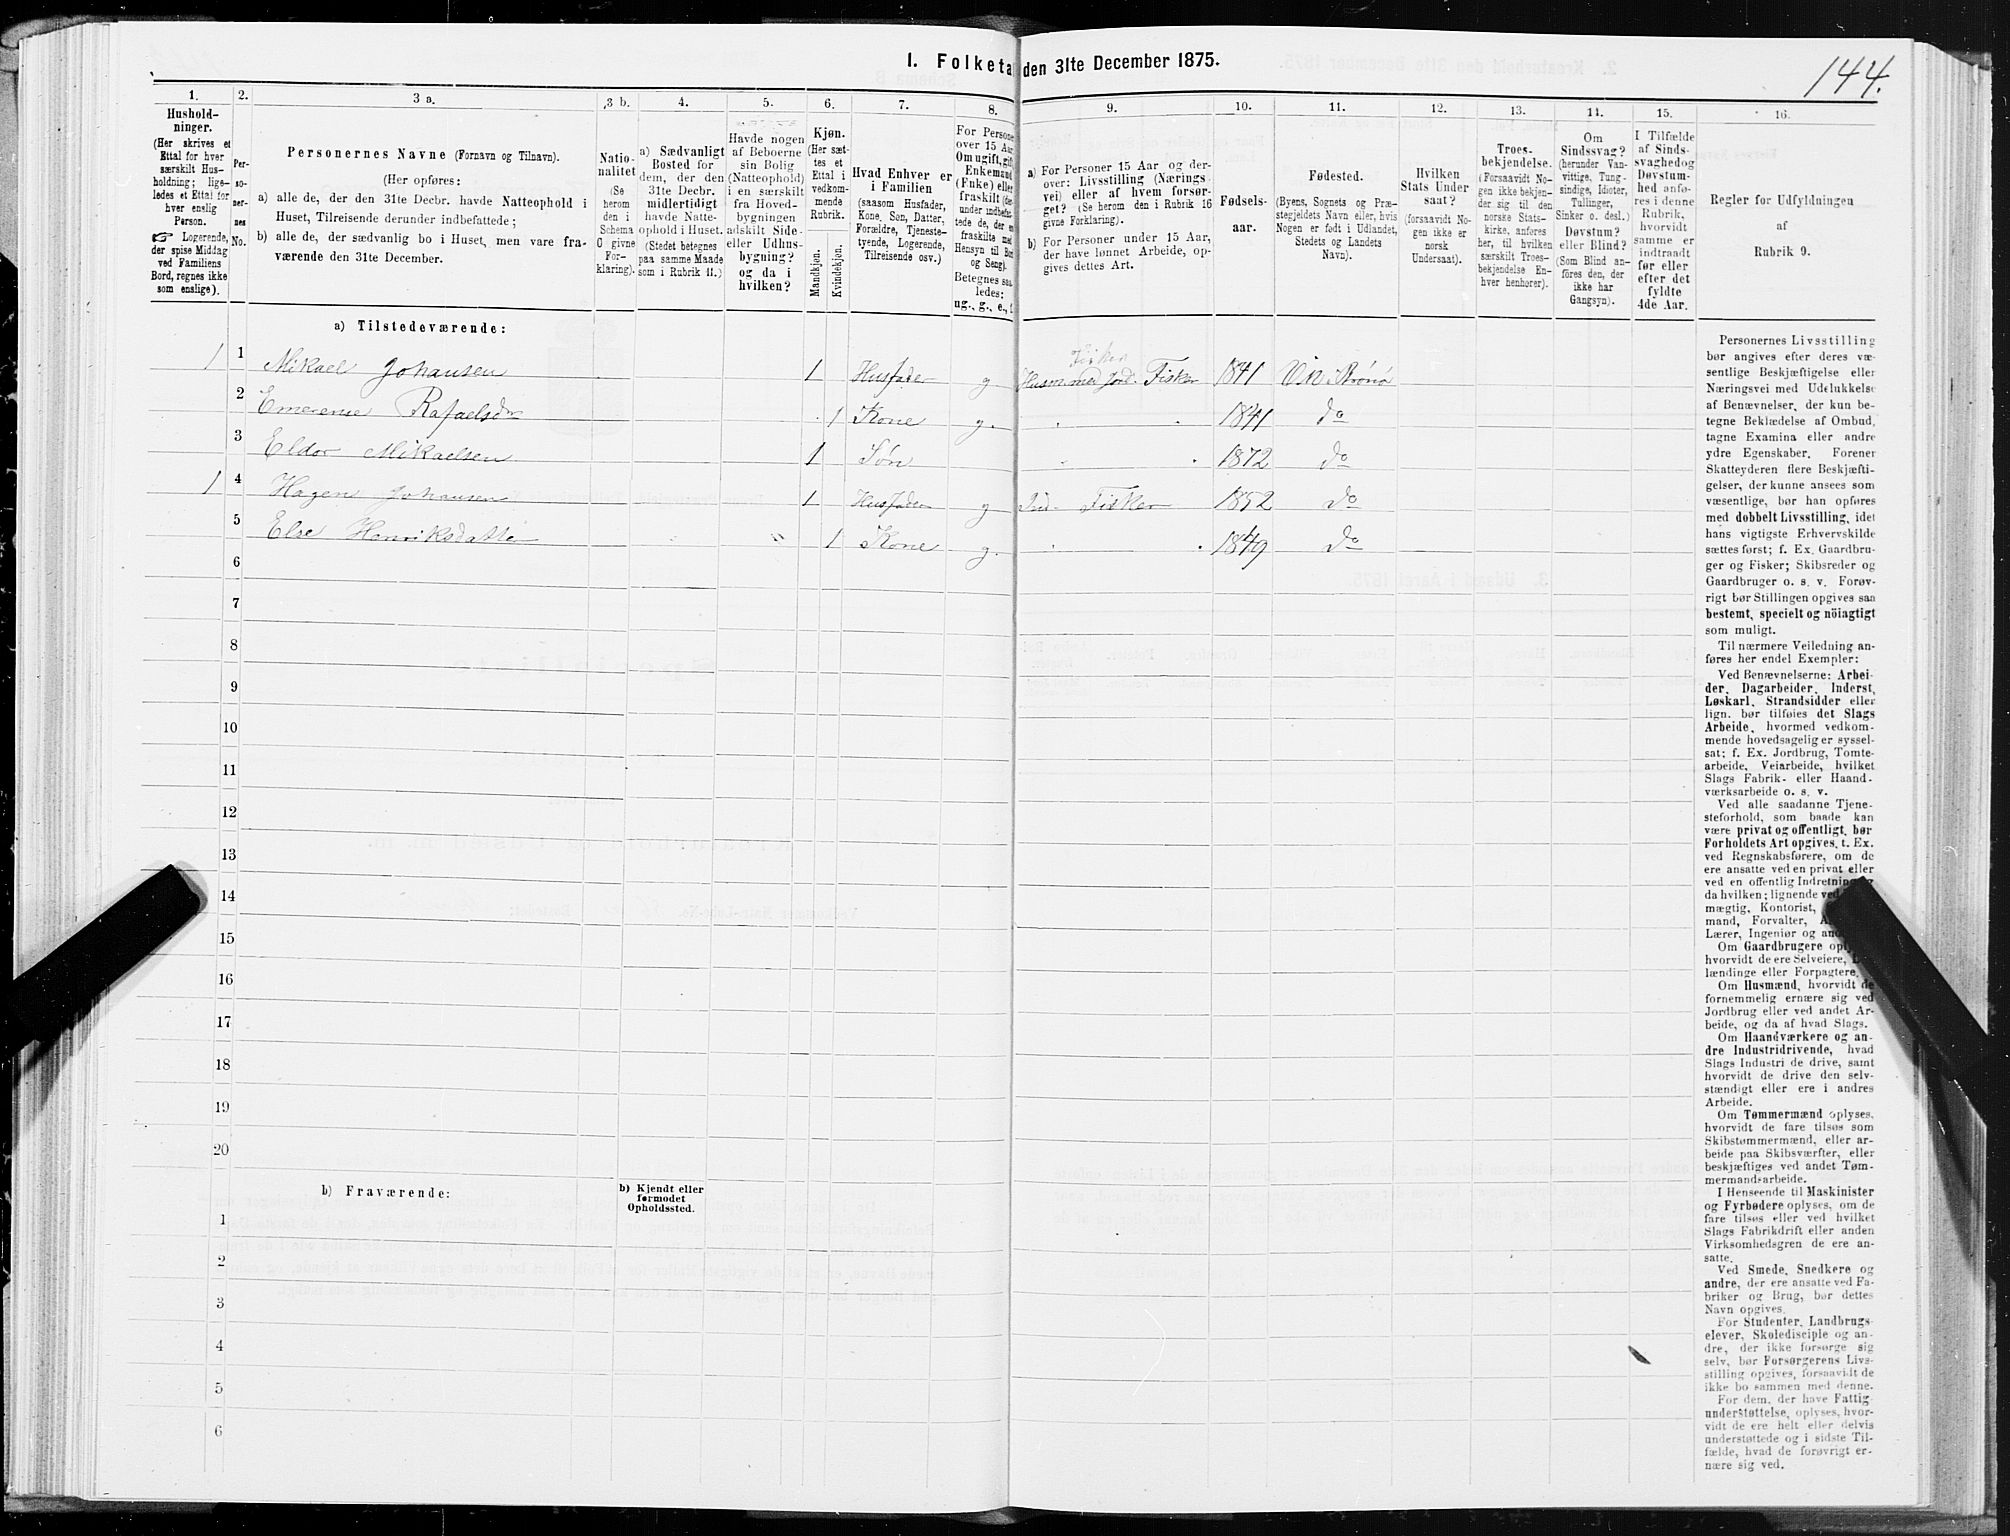 144.
1. Folketa den 31te December 1875.
1. 2. 3 a. 3 b. 4. 5. 6. 7. 8. 9. 10. 11. 12. 13. 14. 15. 16.
Hushold-
ninger.
(Her skrives et
Ettal for hver
særskilt Hus-
holdning; lige-
ledes et Ettal for
hver enslig
Person.
☞ Logerende,
der spise Middag
ved Familiens
Bord, regnes ikke
som enslige).
Per-
so-
ner-
nes
No.
Personernes Navne (Fornavn og Tilnavn).
(Her opføres:
a) alle de, der den 31te Decbr. havde Natteophold i
Huset, Tilreisende derunder indbefattede;
b) alle de, der sædvanlig bo i Huset, men vare fra-
værende den 31te December.
Natio-
nalitet
(Se
herom
den i
Schema
C givne
For-
klaring).
a) Sædvanligt
Bosted for
dem, der den
31te Decbr.
midlertidigt
havde Natte-
ophold i Huset.
(Stedet betegnes
paa samme Maade
som i Rubrik 11.)
Havde nogen
af Beboerne
sin Bolig
(Natteophold)
i en særskilt
fra Hoved-
bygningen
adskilt Side-
eller Udhus-
bygning?
og da i
hvilken?
Kjøn.
(Her sæt-
tes et
Ettal i
vedkom-
mende
Rubrik.
Mandkjøn.
Kvindekjøn.
Hvad Enhver er
i Familien
(saasom Husfader,
Kone, Søn, Datter,
Forældre, Tjeneste-
tyende, Logerende,
Tilreisende osv.)
For Persone
over 15 Aa
Om ugift, gift
Enkemand
(Enke) eller
fraskilt (der-
under indbefat-
tede de, der er
fraskilte med
Hensyn til Bo
og Seng).
Betegnes saa-
ledes:
ug., g., e., f
a) For Personer 15 Aar og der-
over: Livsstilling (Nærings-
vei) eller af hvem forsør-
get? (Se herom den i Rubrik 16
givne Forklaring).
b) For Personer under 15 Aar,
der have lønnet Arbeide, op-
gives dettes Art.
Fødsels-
aar.
Fødested.
(Byens, Sognets og Præ-
stegjeldets Navn eller, hvis
Nogen er født i Udlandet,
Stedets og Landets
Navn).
Hvilken
Stats Under-
saat?
(forsaavidt No-
gen ikke er
norsk
Undersaat).
Troes-
bekjendelse.
(Forsaavidt No-
gen ikke bekjen-
der sig til den
norske Stats-
kirke, anføres
her, til hvilken
særskilt Troes-
bekjendelse En-
hver henhører).
Om
Sindssvag?
(herunder Van-
vittige, Tung-
sindige, Idioter,
Tullinger,
Sinker o. desl.)
Døvstum?
eller Blind?
(Som Blind an-
føres den, der
ikke har
Gangsyn).
I Tilfælde
af Sinds-
svaghed og
Døvstum-
hed anfø-
res i denne
Rubrik,
hvorvidt
samme er
indtraadt
før eller
efter det
fyldte
4de Aar.
Regler for Udfyldningen
af
Rubrik 9.
a) Tilstedeværende:
Fisker
1 1 Mikael Johansen 1 Husfader g Husm. med Jord. Fisker 1841 Brønø
2 Emerense Rafaelsdr 1 Kone g. 1841 do
3 Eldor Mikaelsen 1 Søn 1872 do
1 4 Hagen Johansen 1 Husfader g Ind. Fisker 1852 do
5 Else Henriksdatter 1 Kone g. 1849 do
6
7
8
9
10
11
12
13
14
15
16
17
18
19
20
b) Fraværende:
b) Kjendt eller
formodet
Opholdssted.
1
2
3
4
5
6
Personernes Livsstilling
bør angives efter deres væ-
sentlige Beskjæftigelse eller
Næringsvei med Udelukkelse
af Benævnelser, der kun be-
tegne Beklædelse af Ombud,
tagne Examina eller andre
ydre Egenskaber. Forener
Skatteyderen flere Beskjæfti-
gelser, der kunne ansees som
væsentlige, bør han opføres
med dobbelt Livsstilling, idet
hans vigtigste Erhvervskilde
sættes først; f. Ex. Gaardbru-
ger og Fisker; Skibsreder og
Gaardbruger o. s. v. Forøv-
rigt bør Stillingen opgives saa
bestemt, specielt og nöiagtigt
som muligt.
Til nærmere Veiledning an-
føres her endel Exempler:
Ved Benævnelserne: Arbei-
der, Dagarbeider, Inderst,
Løskarl, Strandsidder eller
lign. bør tilføies det Slags
Arbeide, hvormed vedkom-
mende hovedsagelig er syssel-
sat; f. Ex. Jordbrug, Tomte-
arbeide, Veiarbeide, hvilket
Slags Fabrik- eller Haand-
værksarbeide o. s. v.
Ved alle saadanne Tjene-
steforhold, som baade kan
være privat og offentligt, bør
Forholdets Art opgives, t. Ex.
ved Regnskabsførere, om de
ere ansatte ved en privat eller
ved en offentlig Indretning
da hvilken; lignende ved
mægtig, Kontorist,
mand, Forvalter,
Lærer, Ingeniør og
Om Gaardbrugere
hvorvidt de ere Selveiere,
lændinge eller Forpagtere.
Om Husmænd, hvorvidt de
fornemmelig ernære sig ved
Jordbrug eller ved andet Ar-
beide, og da af hvad Slags.
Om Haandværkere og an-
dre Industridrivende, hvad
Slags Industri de drive, samt
hvorvidt de drive den selv-
stændigt eller ere i andres
Arbeide.
Om Tømmermænd oplyses,
hvorvidt de fare tilsøs som
Skibstømmermænd, eller ar-
beide paa Skibsværfter, eller
beskjæftiges ved andet Tøm-
mermandsarbeide.
I Henseende til Maskinister
og Fyrbødere oplyses, om de
fare tilsøs eller ved hvilket
Slags Fabrikdrift eller anden
Virksomhedsgren de ere an-
satte.
Ved Smede, Snedkere og
andre, der ere ansatte ved Fa-
briker og Brug, bør dettes
Navn opgives.
For Studenter, Landbrugs-
elever, Skoledisciple og an-
dre, der ikke forsørge sig
selv, bør Forsørgerens Livs-
stilling opgives, forsaavidt de
ikke bo sammen med denne.
For dem, der have Fattig-
understøttelse, oplyses, hvor-
vidt de ere helt eller delvis
understøttede og i sidste Til-
fælde, hvad de forøvrigt er-
nære sig ved.